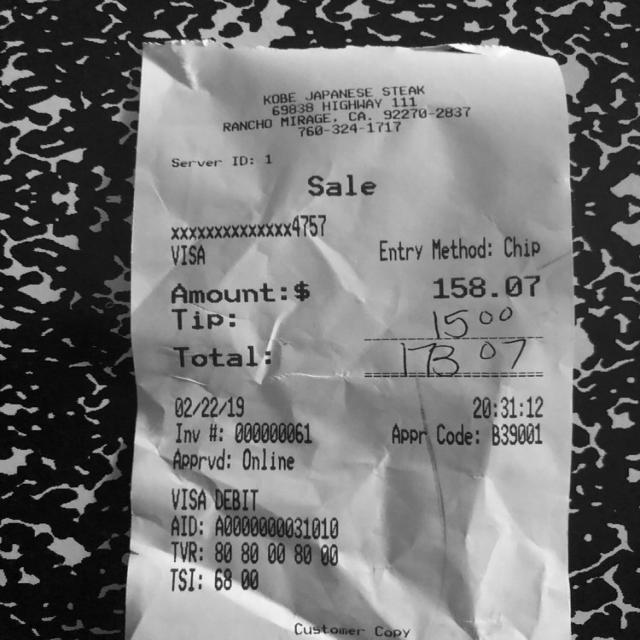 KOBE JAPANESE STEAK
69838 HIGHWAY 111
RANCHO MIRAGE, CA, 92270-2837
760-324-1717
Server ID: 1
Sale
xxxxxxxxxxxxxx4757
VISA Entry Method: Chip
Amount:$ 158.07
Tip: 15 00
Total: 173 07
02/22/19 20:31:12
Inv #: 000000061 Appr Code: B39001
Apprvd: Online
VISA DEBIT
AID: A0000000031010
TVR: 80 80 00 80 00
TSI: 68 00
Customer Copy